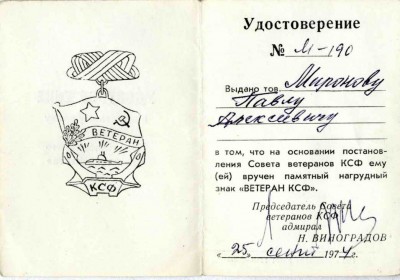 ВЕТЕРАН
КСФ
Удостоверение
№ М-190
Выдано тов. Миронову
Павлу
Алексеевичу
в том, что на основании постанов-
ления Совета ветеранов КСФ ему
(ей) вручен памятный нагрудный
знак «ВЕТЕРАН КСФ».
Председатель Совета
ветеранов КСФ
адмирал
Н. ВИНОГРАДОВ
«25 1974 г.